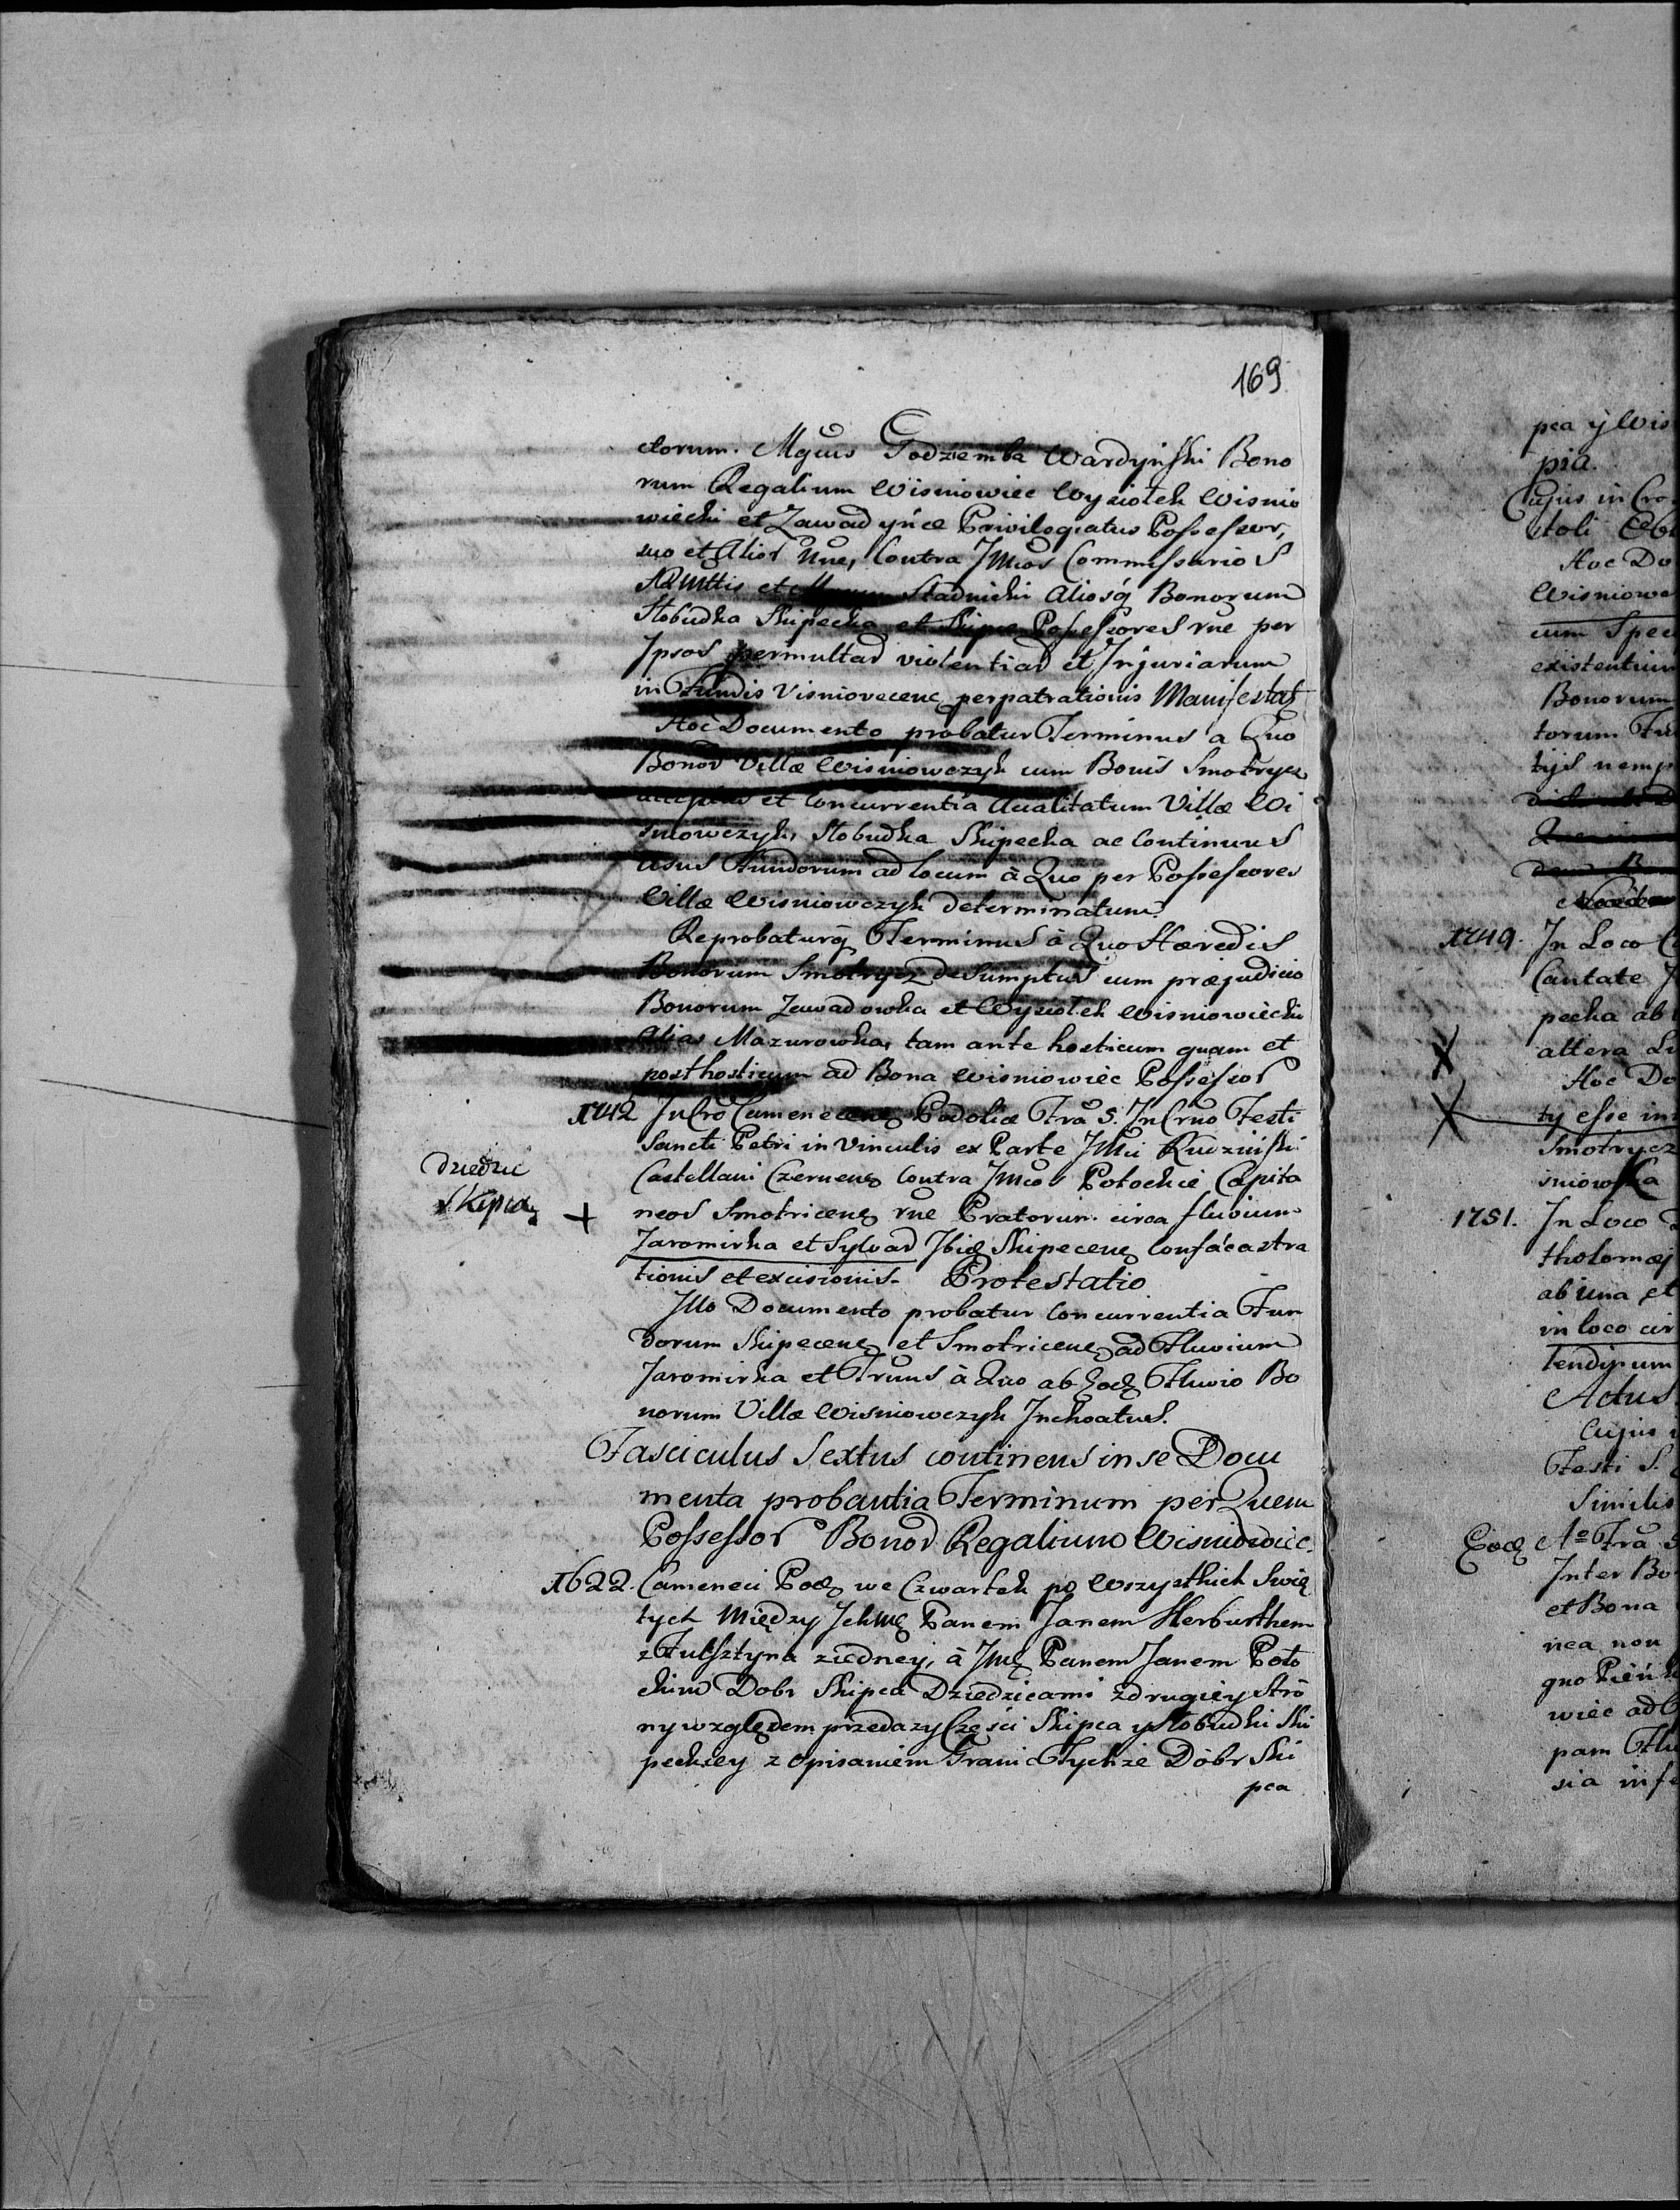 169
ctorum. Mgūus Godziemba Wardyński Bono
rum Regalium Wisniowiec Wyziołek Wisnio
wiecki et Zawadyńce Privilegiatus Possessor,
suo et Alior Nne, Contra JMcos Commissarios
et Stadnicki Aliosq Bonorum
Słobudka Skipecka et Skipce Possessores rne per
Ipsos permultar violentiar et Injuriarum
in Fundis Visniovecenc perpatrationis Manifestat
Hoc Documento probatur Terminus a Quo
Bonor Villæ Wisniowczyk cum Bonis Smotrycz
acceptus et Concurrentia Aualitatum Villæ Wi
sniowczyk, Słobudka Skipecka ac Continuus
Usus Fundorum ad locum à Quo per Possessores
Villæ Wisniowczyk determinatum.
Reprobaturq Terminus à Quo Hæredis
Bonorum Smotrycz desumptus cum præjudicio
Bonorum Zawadowka et Wyziołek Wisniowiecki
Alias Mazurowka, tam ante hosticum quam et
posthosticum ad Bona Wisniowiec Possessor
1742 In Cro Camenecene Podoliæ Fra 5. In Crno Festi
Sancti Petri in Vinculis ex Parte JMci Kuczinski
Castellani Czernene Contra JMcos Potockie Capita
dziedzic
Skipca
+ neos Smotricene rne Pratorum circa fluvium
Jaromirka et Sylvar Ibid Skipecene
tionis et excisionis. Protestatio
Illo Documento probatur Concurrentia Fun
dorum Skipecene et Smotricene ad Fluvium
Jaromirka et Trnus à Quo ab Eod Fluvio Bo
norum Villæ Wisniowczyk Inchoatus.
Fasciculus Sextus continens in se Docu
menta probantia Terminum per Quem
Possessor Bonor Regalium Wisniowiec.
1622. Cameneci Pod we Czwartek po Wszystkich Swię
tych Między JchMę Panem Janem Herburthem
z Fulsztyna ziedney, à JMę Panem Janem Poto
ckim Dobr Skipca Dziedzicami z drugiey Stro
ny względem przedazy Części Skipca y Słobudki Ski
peckiey z opisaniem Granic Tychże Dobr Ski
pca
pca y Wis
pia.
Cujus in Cro
stoli
Hoc Do
Wisniowe
cum Spec
existentium
Bonorum
torum
tijs nemp
1749. In Loco
Cantate
pecka ab
X altera
Hoc Do
X ty esse in
Smotrycz
sniowka
1751. In Loco
tholomæj
ab una et
in loco cir
tendipum
Actus
Cujus
Festi S.
Similis
Eod Ao Fra
Inter Bo
et Bona
nea non
quo Pień
wiec ad
pam Flu
sia infe